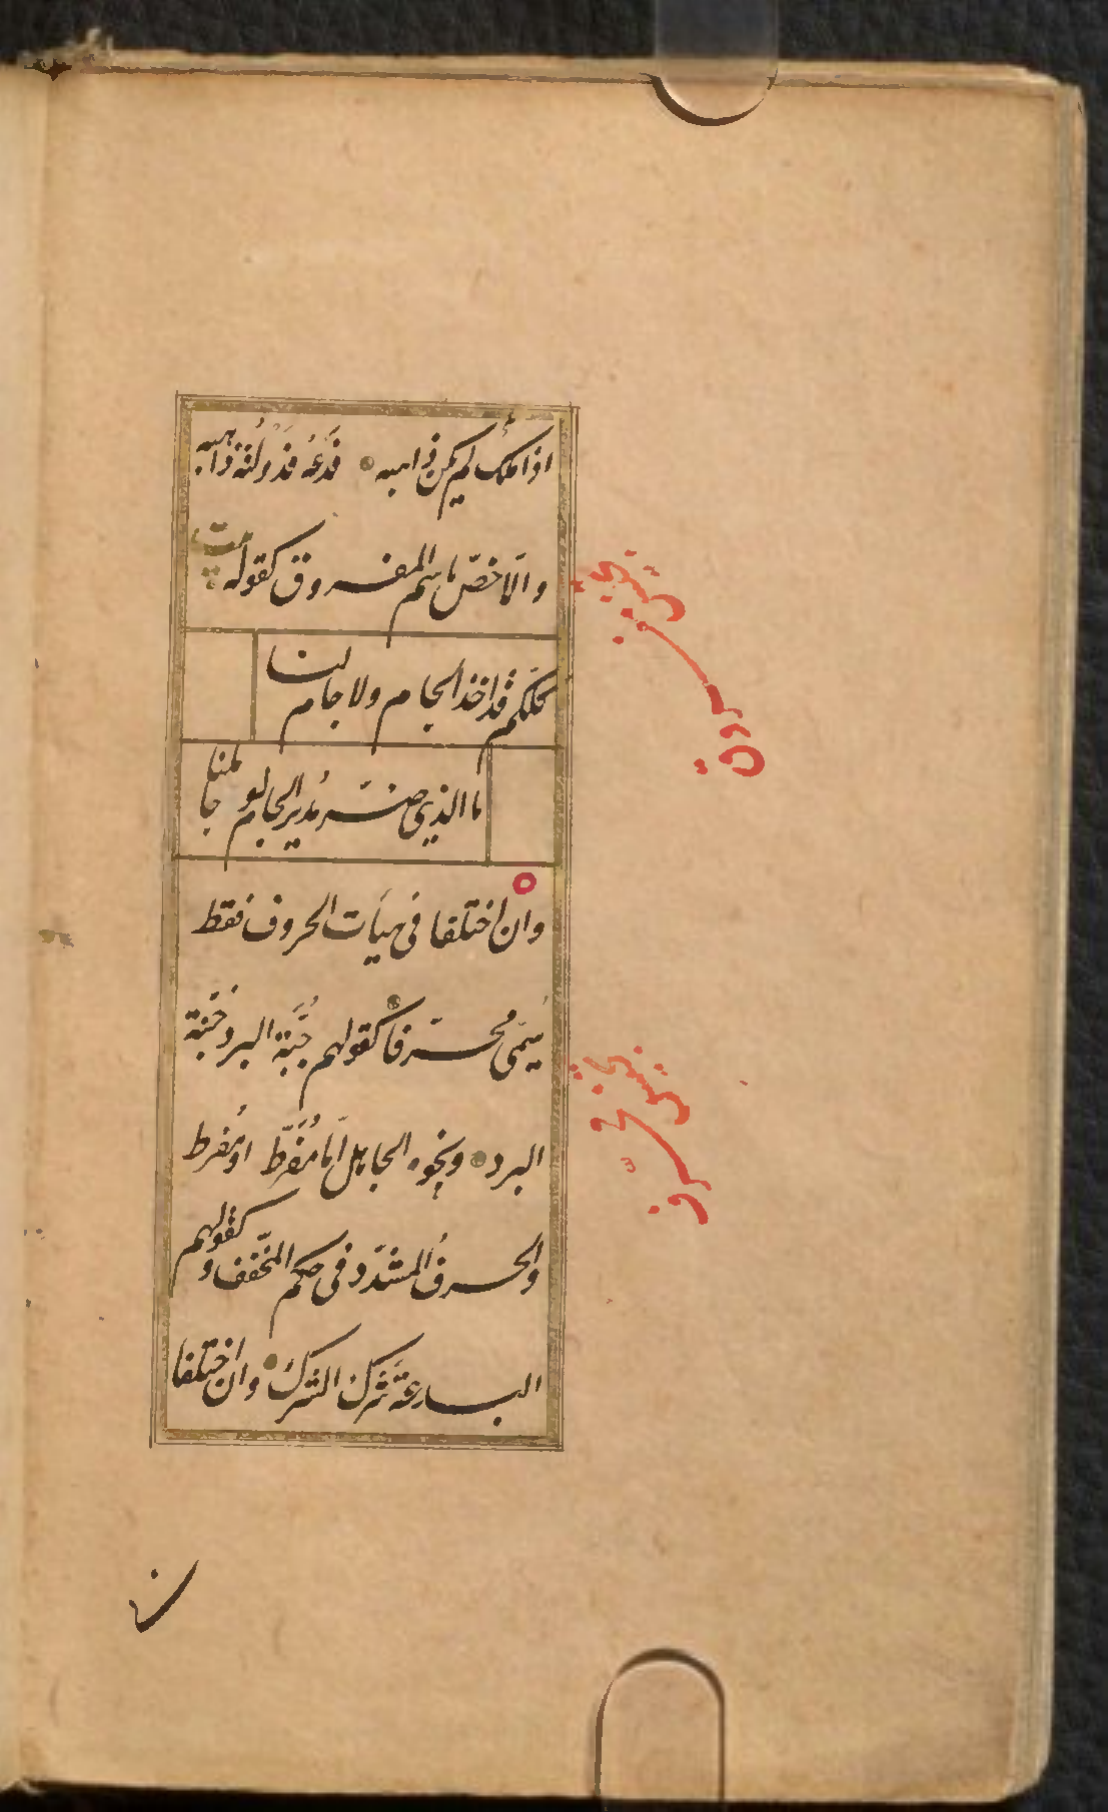 اذا ملك لم يكن ذا هبه فدَعْهُ فدولته ذاهبه
والّا خصّ باسم المفروق كقوله بيت
كلكم قد اخذ الجام ولا جام لنا
ما الذي ضرّ مُدير الجام لو جاملنا
وان اختلفا فى هيأت الحروف فقط
يُسمّى محرّفا كقولهم جُبَّة البرد جُنَّة
البرد ونحوه الجاهل امّا مُفرِّط او مُفرط
والحرف المشدّد فى حكم المخّفف وكقولهم
البدعة شَرَك الشرك وان اختلفا
تجنيس مفروق
تجنيس محرّف